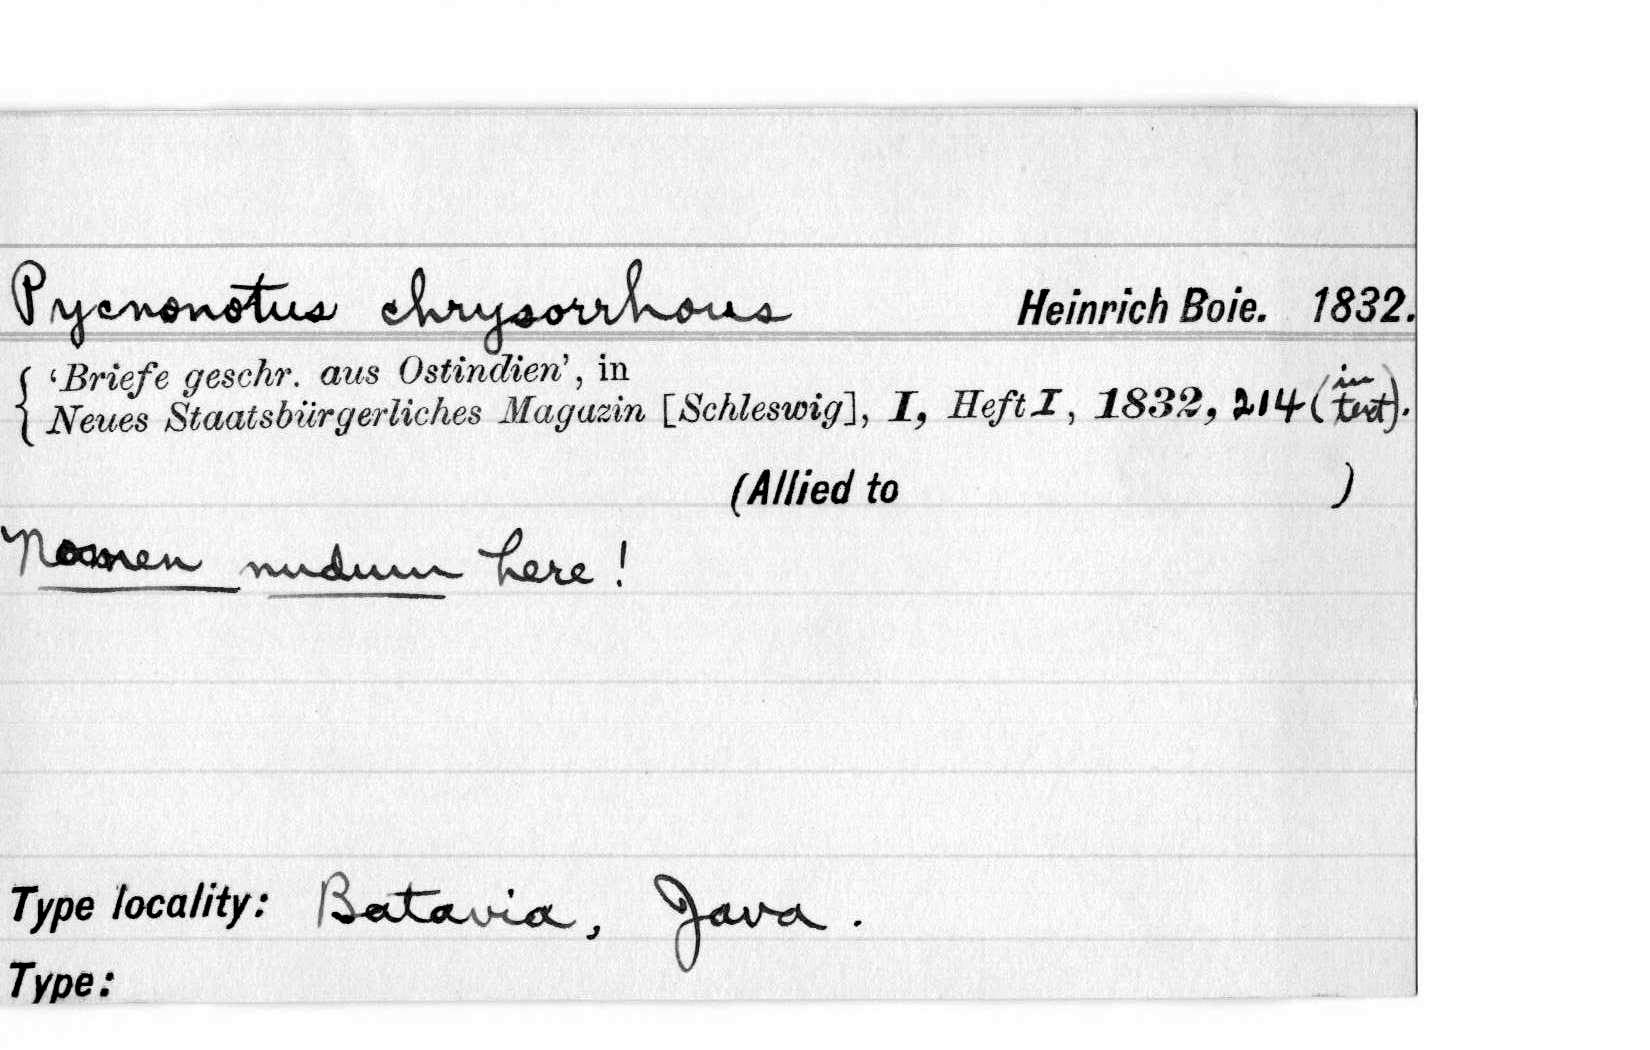 Pycnonotus chrysorrhous Heinrich Boie. 1832.
'Briefe geschr. aus Ostindien', in
Neues Staatsbürgerliches Magazin [Schleswig], I, Heft I, 1832, 214 (in text).
(Allied to )
Nomen nudum here!
Type locality: Batavia, Java.
Type: